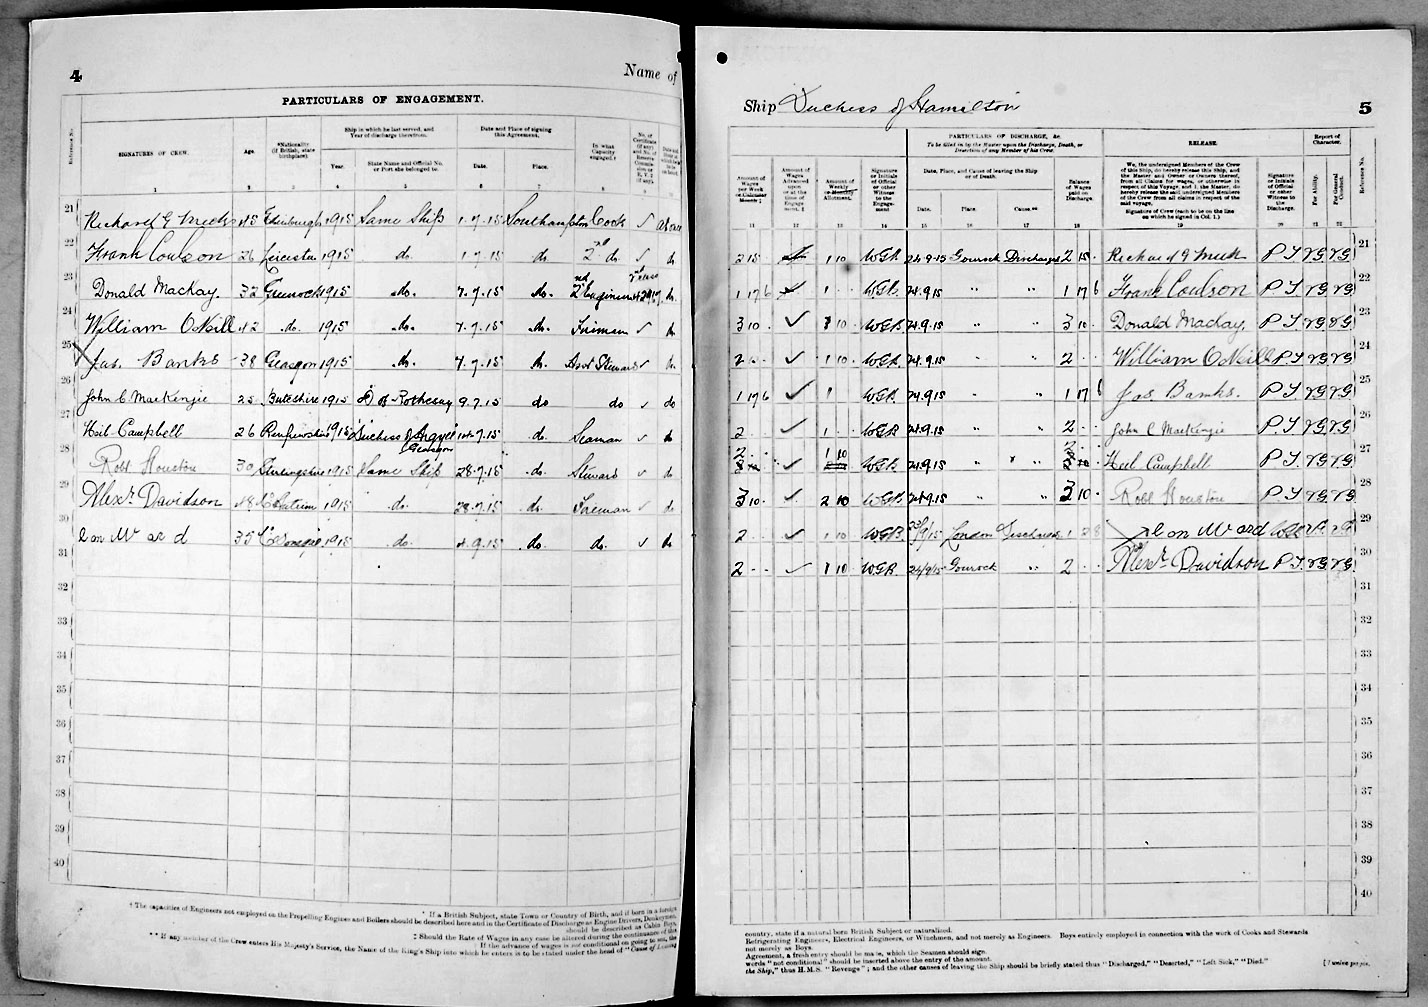 4
Name of
PARTICULARS OF ENGAGEMENT.
Reference No.
SIGNATURES OF CREW.
Age.
*Nationality (if British, state birthplace).
Ship in which he last served, and Year of discharge therefrom.
Year.
State Name and Official No. or Port she belonged to.
Date and Place of signing this Agreement.
Date.
Place.
In what Capacity engaged.†
21 Richard G Meek 45 Edinburgh 1915 Same Ship 1.7.15 Southampton Cook ✓ at once
22 Frank Coulson 26 Leicester 1915 do. 1.7.15 do 2nd do. ✓ do
23 Donald Mackay. 32 Greenock 1915 do. 7.7.15 do. 2nd Engineer do.
24 William O'Neill 42 do. 1915 do. 7.7.15 do. Fireman ✓ do
25 Jas. Banks 38 Glasgow 1915 do. 7.7.15 do. Asst Steward ✓ do.
26 John C MacKenzie 25 Buteshire 1915 D of Rothesay 9.7.15 do do ✓ do
27 Neil Campbell 26 Renfrewshire 1915 Duchess of Argyll Glasgow 7.15 do. Seaman ✓ do
28 Robt Houston 30 Stirlingshire 1915 Same Ship 28.7.15 do. Steward ✓ do
29 Alexr. Davidson 48 1915 do. 28.7.15 do. Fireman ✓ do
30 Leon Ward 35 1915 do. 4.9.15 do. do. ✓ do
31
32
33
34
35
36
37
38
39
40
† The capacities of Engineers not employed on the Propelling Engines and Boilers should be described here and in the Certificate of Discharge as Engine Drivers, Donkeymen,
* If a British Subject, state Town or Country of Birth, and if born in a foreign
should be described as Cabin Boys,
‡ Should the Rate of Wages in any case be altered during the continuance of this
If the advance of wages is not conditional on going to sea, the
** If any member of the Crew enters His Majesty's Service, the Name of the King's Ship into which he enters is to be stated under the head of "Cause of Leaving
Ship Duchess of Hamilton
5
PARTICULARS OF DISCHARGE, &c.
To be filled in by the Master upon the Discharge, Death, or Desertion of any Member of his Crew.
RELEASE.
Report of Character.
Amount of Wages per Week or Calendar Month ‡
Amount of Wages Advanced upon or at the time of Engagement. §
Amount of Weekly or Monthly Allotment.
Signature or Initials of Official or other Witness to the Engagement
Date, Place, and Cause of leaving the Ship or of Death.
Date.
Place.
Cause.**
Balance of Wages paid on Discharge.
We, the undersigned Members of the Crew of this Ship, do hereby release this Ship, and the Master and Owner or Owners thereof, from all Claims for wages, or otherwise in respect of this Voyage, and I, the Master, do hereby release the said undersigned Members of the Crew from all claims in respect of the said voyage.
Signature of Crew (each to be on the line on which he signed in Col. 1.)
Signature or Initials of Official or other Witness to the Discharge.
For Ability.
For General Conduct.
Reference No.
11 12 13 14 15 16 17 18 19 20 21 22
2 15 1 10 WGR 24.9.15 Gourock Discharged 2 15 Richard G Meek P J VG VG 21
1 17 6 1 WGR 24.9.15 " " 1 17 6 Frank Coulson P J. VG VG 22
3 10 ✓ 10 WGR 24.9.15 " " 3 10 Donald Mackay, P J. VG VG 23
2 ✓ 1 10 WGR 24.9.15 " " 2 William O'Neill P J VG VG 24
1 17 6 ✓ 1 WGR 24.9.15 " " 1 17 6 Jas Banks. P J VG VG 25
2 ✓ 1 WGR 24.9.15 " " 2 John C MacKenzie P J VG VG 26
2 ✓ 1 10 WGR 24.9.15 " " Neil Campbell P J. VG VG 27
3 10 ✓ 2 10 WGR 24.9.15 " " 3 10 Robt Houston P J VG VG 28
2 ✓ 1 10 WGR 23/9/15 London Discharged Leon Ward 29
2 ✓ 1 10 WGR 24/9/15 Gourock " 2 Alexr Davidson P J. VG VG 30
31
32
33
34
35
36
37
38
39
40
country, state if a natural born British Subject or naturalised.
Refrigerating Engineers, Electrical Engineers, or Winchmen, and not merely as Engineers. Boys entirely employed in connection with the work of Cooks and Stewards
not merely as Boys.
Agreement, a fresh entry should be made, which the Seamen should sign.
words "not conditional" should be inserted above the entry of the amount.
the Ship," thus H.M.S. "Revenge"; and the other causes of leaving the Ship should be briefly stated thus "Discharged," "Deserted," "Left Sick," "Died."